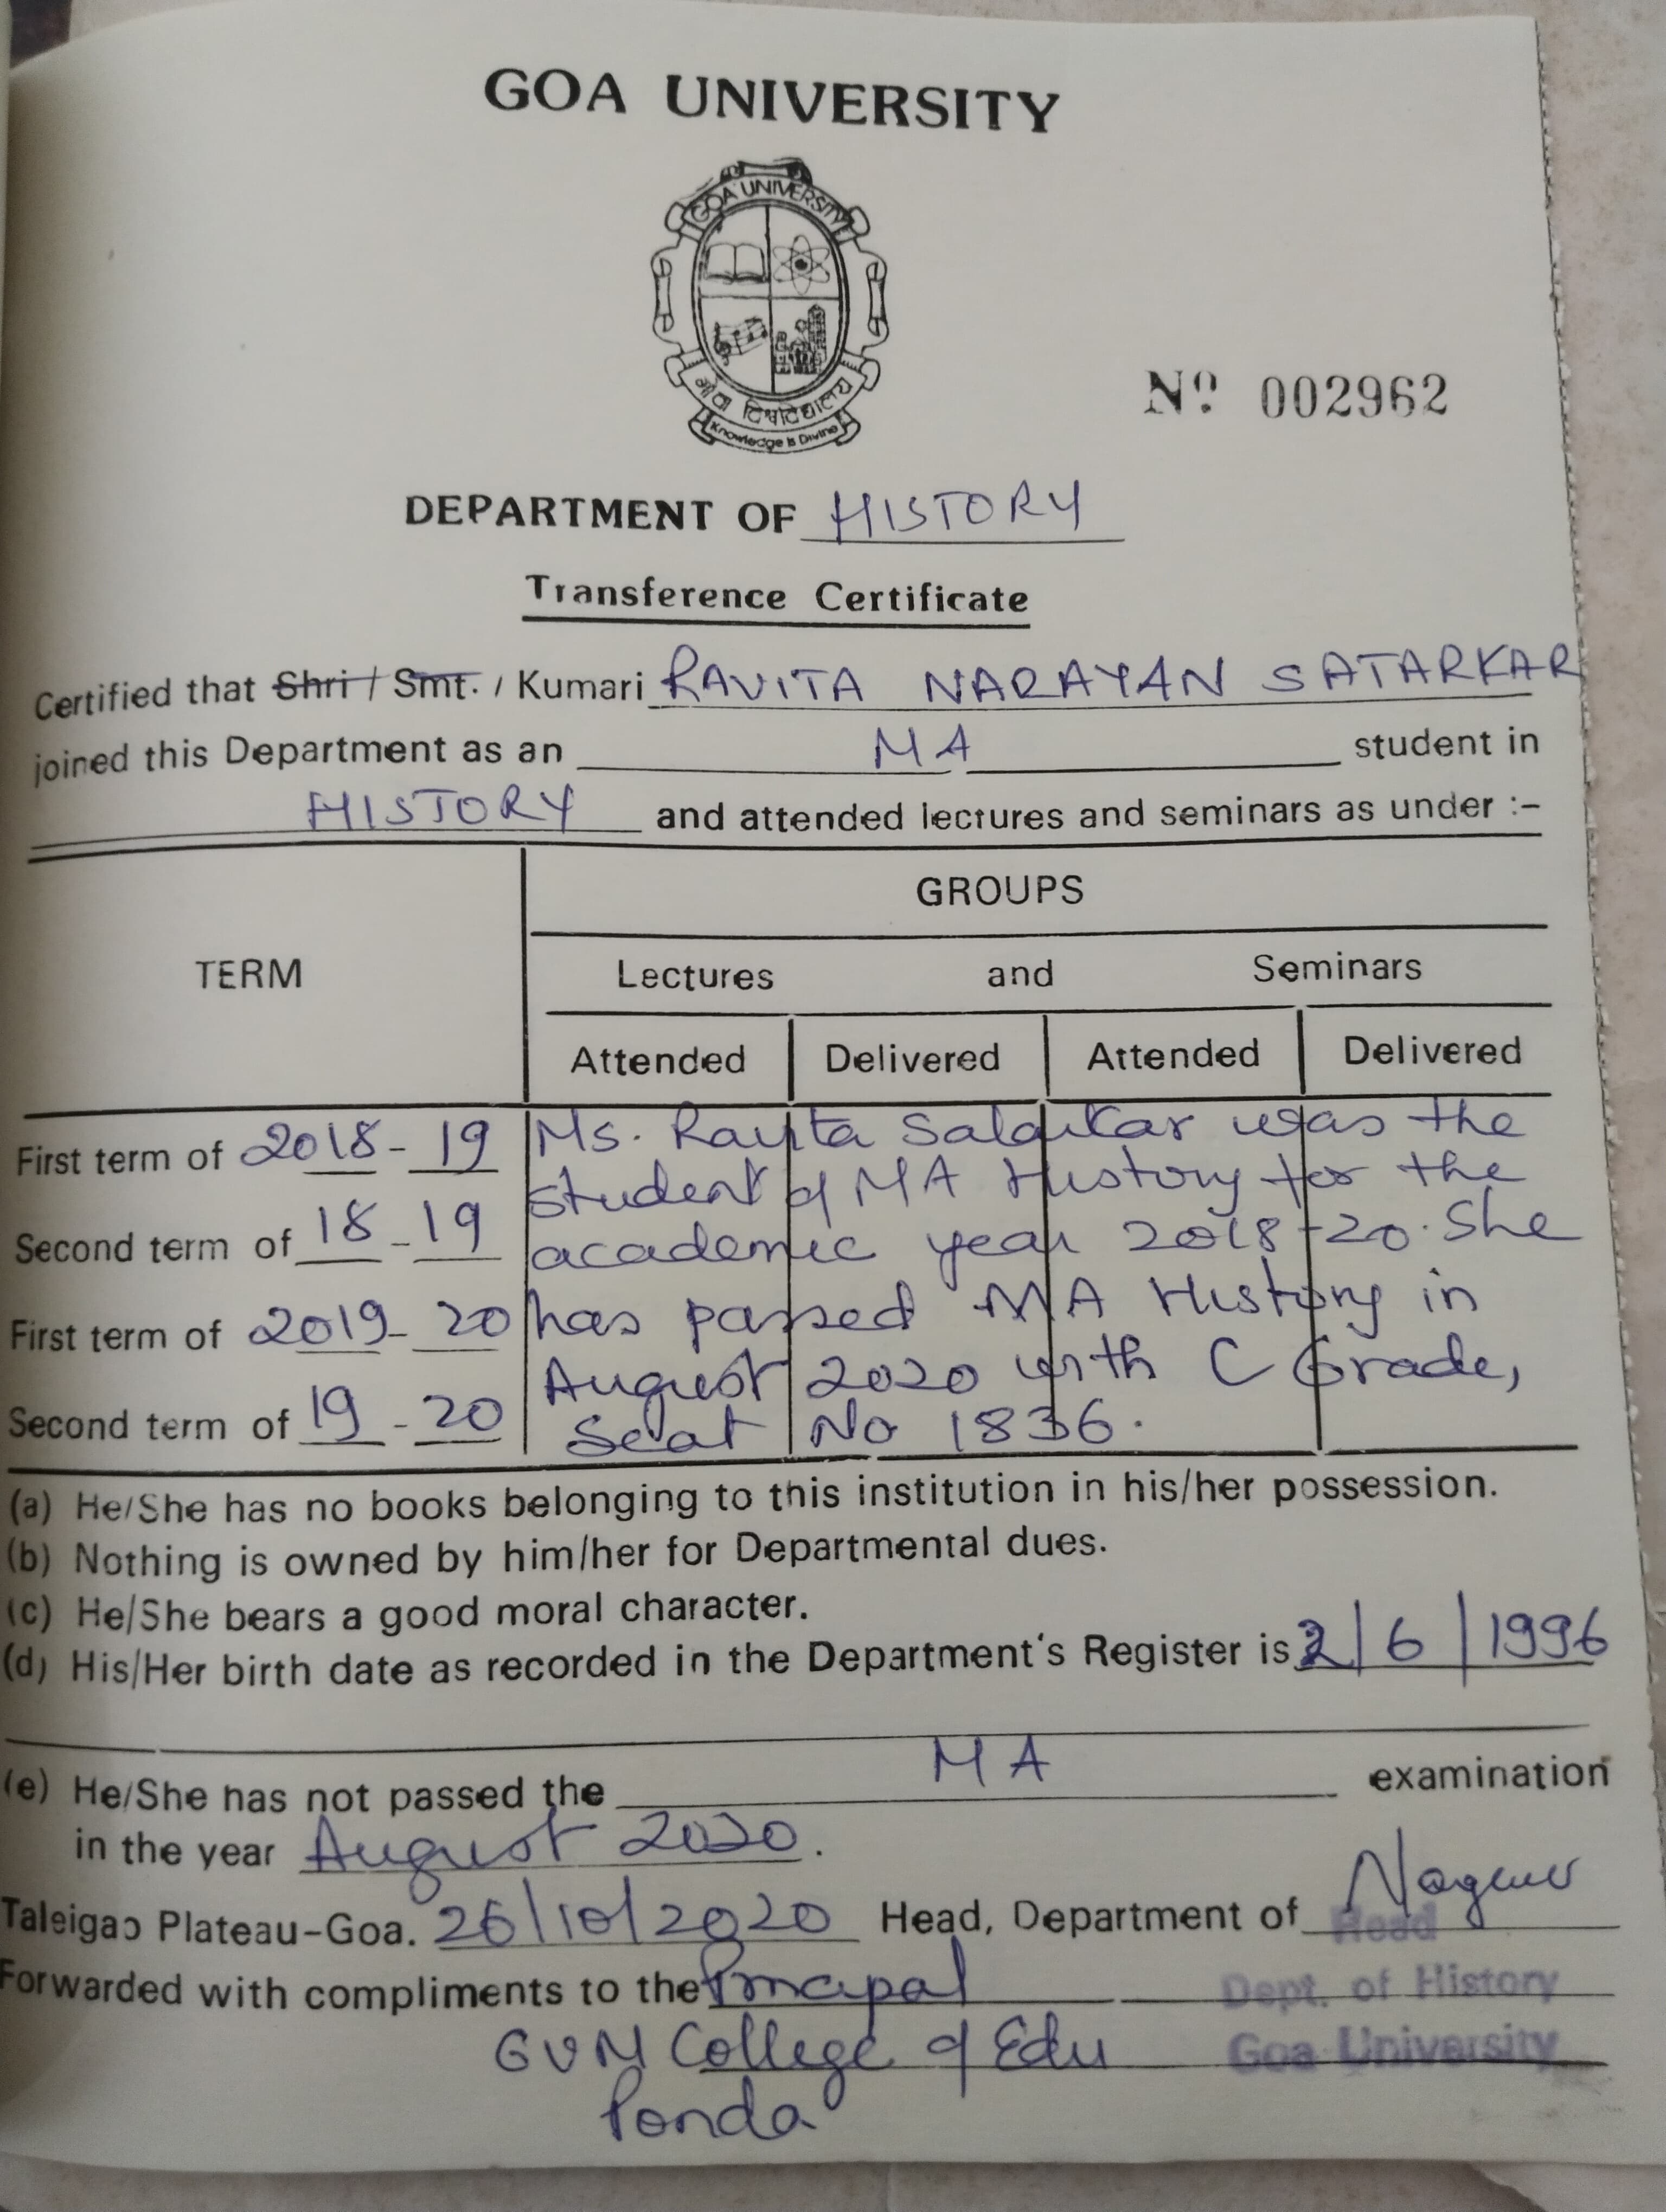 GOA UNIVERSITY
GOA UNIVERSITY
गोंय विश्वविद्यालय
Knowledge is Divine
Nº 002962
DEPARTMENT OF HISTORY
Transference Certificate
Certified that Shri / Smt. / Kumari RAVITA NARAYAN SATARKAR
joined this Department as an MA student in
HISTORY and attended lectures and seminars as under :-
GROUPS
TERM Lectures and Seminars
Attended Delivered Attended Delivered
First term of 2018-19 Ms. Ravita Satarkar was the
student of MA History for the
Second term of 18-19 academic year 2018-20. She
First term of 2019-20 has passed MA History in
August 2020 with C Grade,
Second term of 19-20 Seat No 1836.
(a) He/She has no books belonging to this institution in his/her possession.
(b) Nothing is owned by him/her for Departmental dues.
(c) He/She bears a good moral character.
(d) His/Her birth date as recorded in the Department's Register is 2/6/1996
(e) He/She has not passed the MA examination
in the year August 2020.
Taleigao Plateau-Goa. 26/10/2020 Head, Department of
Head
Forwarded with compliments to the Principal Dept. of History
GVM College of Edu Goa University
Ponda